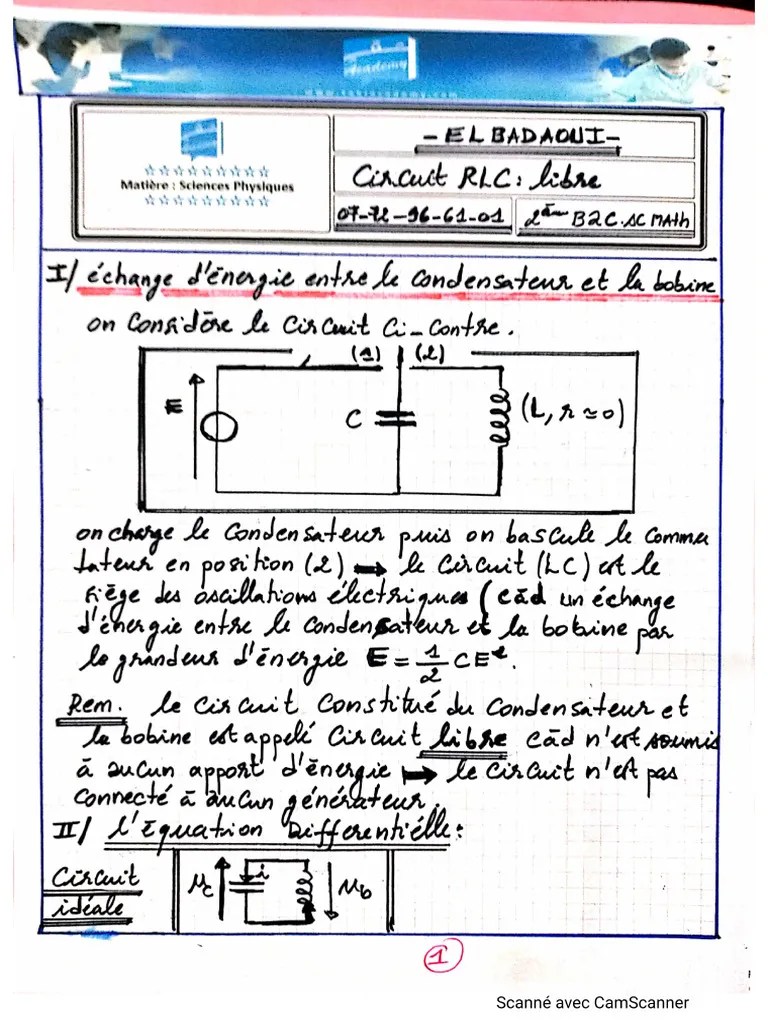 Academy
- ELBADAOUI -
Matière : Sciences Physiques
Circuit RLC : libre
07-72-96-61-01
2ème B2C.SC MATH
I/ échange d'énergie entre le condensateur et la bobine
on considère le circuit ci-contre.
(1) (2)
E
C
(L, r ≃ 0)
on charge le condensateur puis on bascule le commu
tateur en position (2) → le circuit (LC) est le
siège des oscillations électriques (càd un échange
d'énergie entre le condensateur et la bobine par
la grandeur d'énergie E = 1/2 CE².
Rem. le circuit constitué du condensateur et
la bobine est appelé circuit libre càd n'est soumis
à aucun apport d'énergie → le circuit n'est pas
connecté à aucun générateur.
II/ l'équation Differentiélle :
Circuit
idéale
uc
i
ub
1
Scanné avec CamScanner